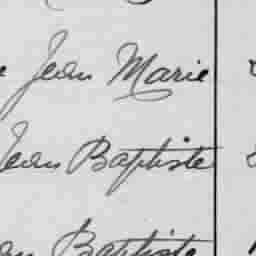 Jean Marie
Jean Baptiste
Baptiste